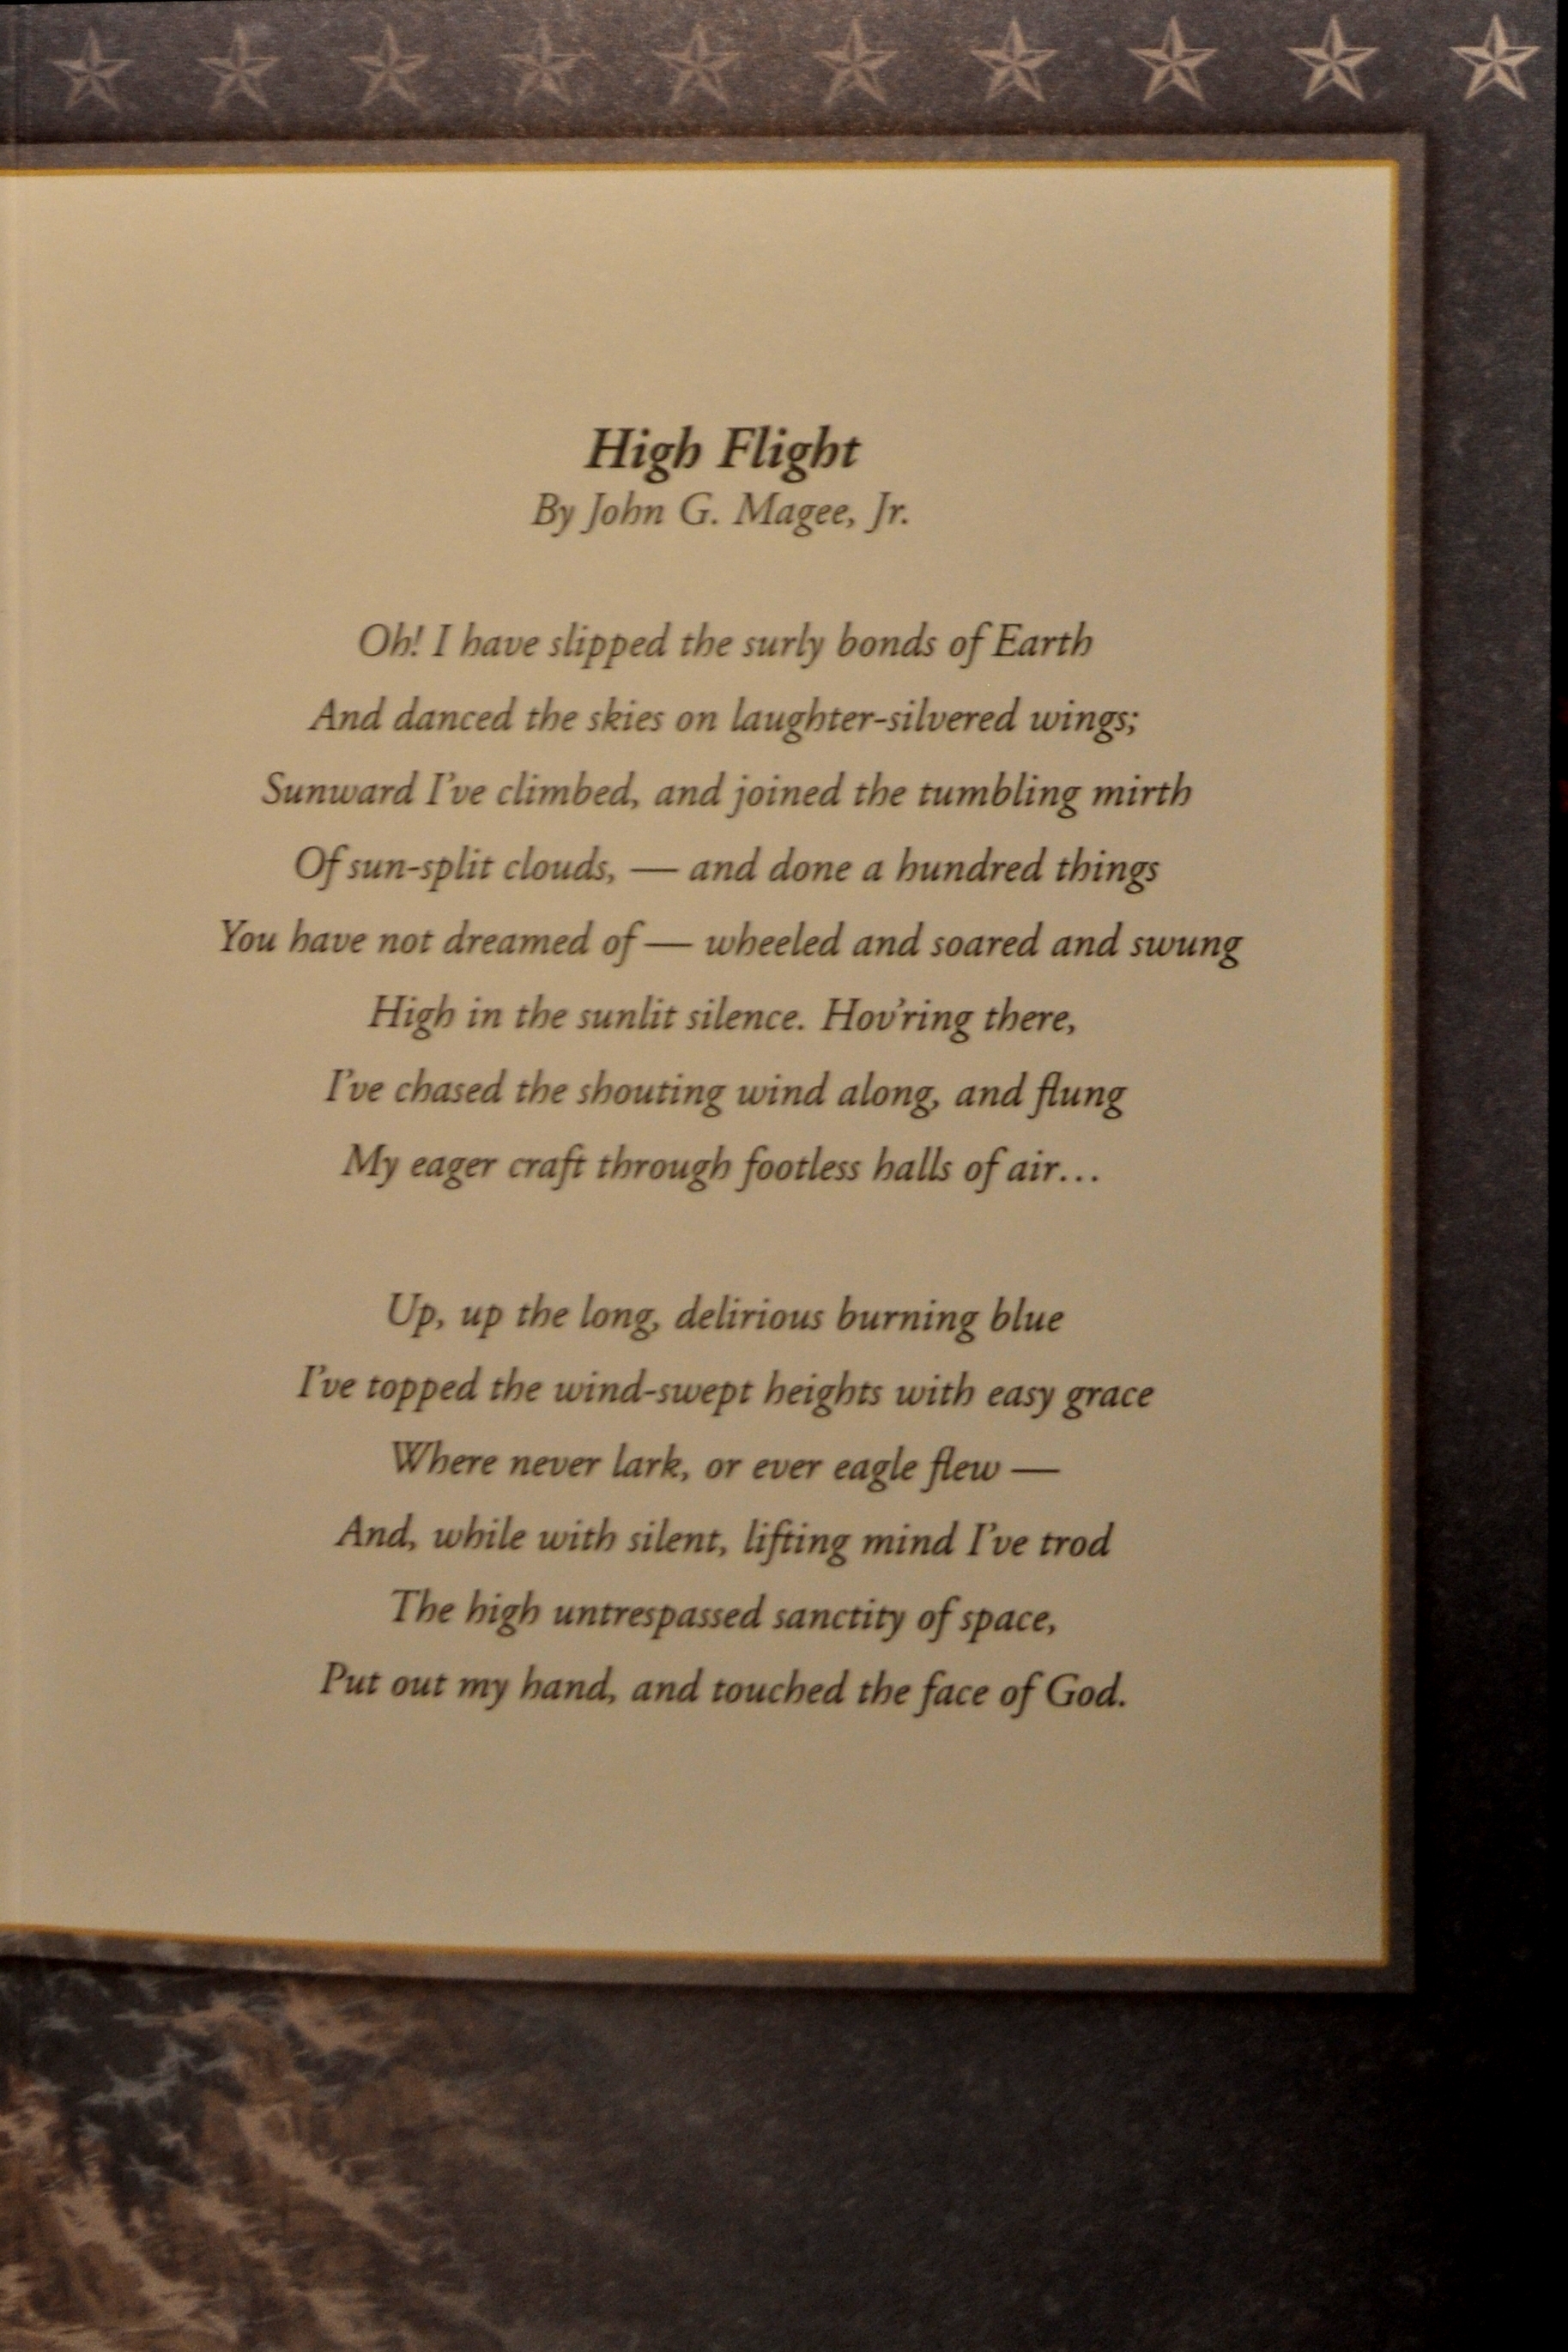 High Flight
By John G. Magee, Jr.
Oh! I have slipped the surly bonds of Earth
And danced the skies on laughter-silvered wings;
Sunward I’ve climbed, and joined the tumbling mirth
Of sun-split clouds, — and done a hundred things
You have not dreamed of — wheeled and soared and swung
High in the sunlit silence. Hov’ring there,
I’ve chased the shouting wind along, and flung
My eager craft through footless halls of air…
Up, up the long, delirious burning blue
I’ve topped the wind-swept heights with easy grace
Where never lark, or ever eagle flew —
And, while with silent, lifting mind I’ve trod
The high untrespassed sanctity of space,
Put out my hand, and touched the face of God.